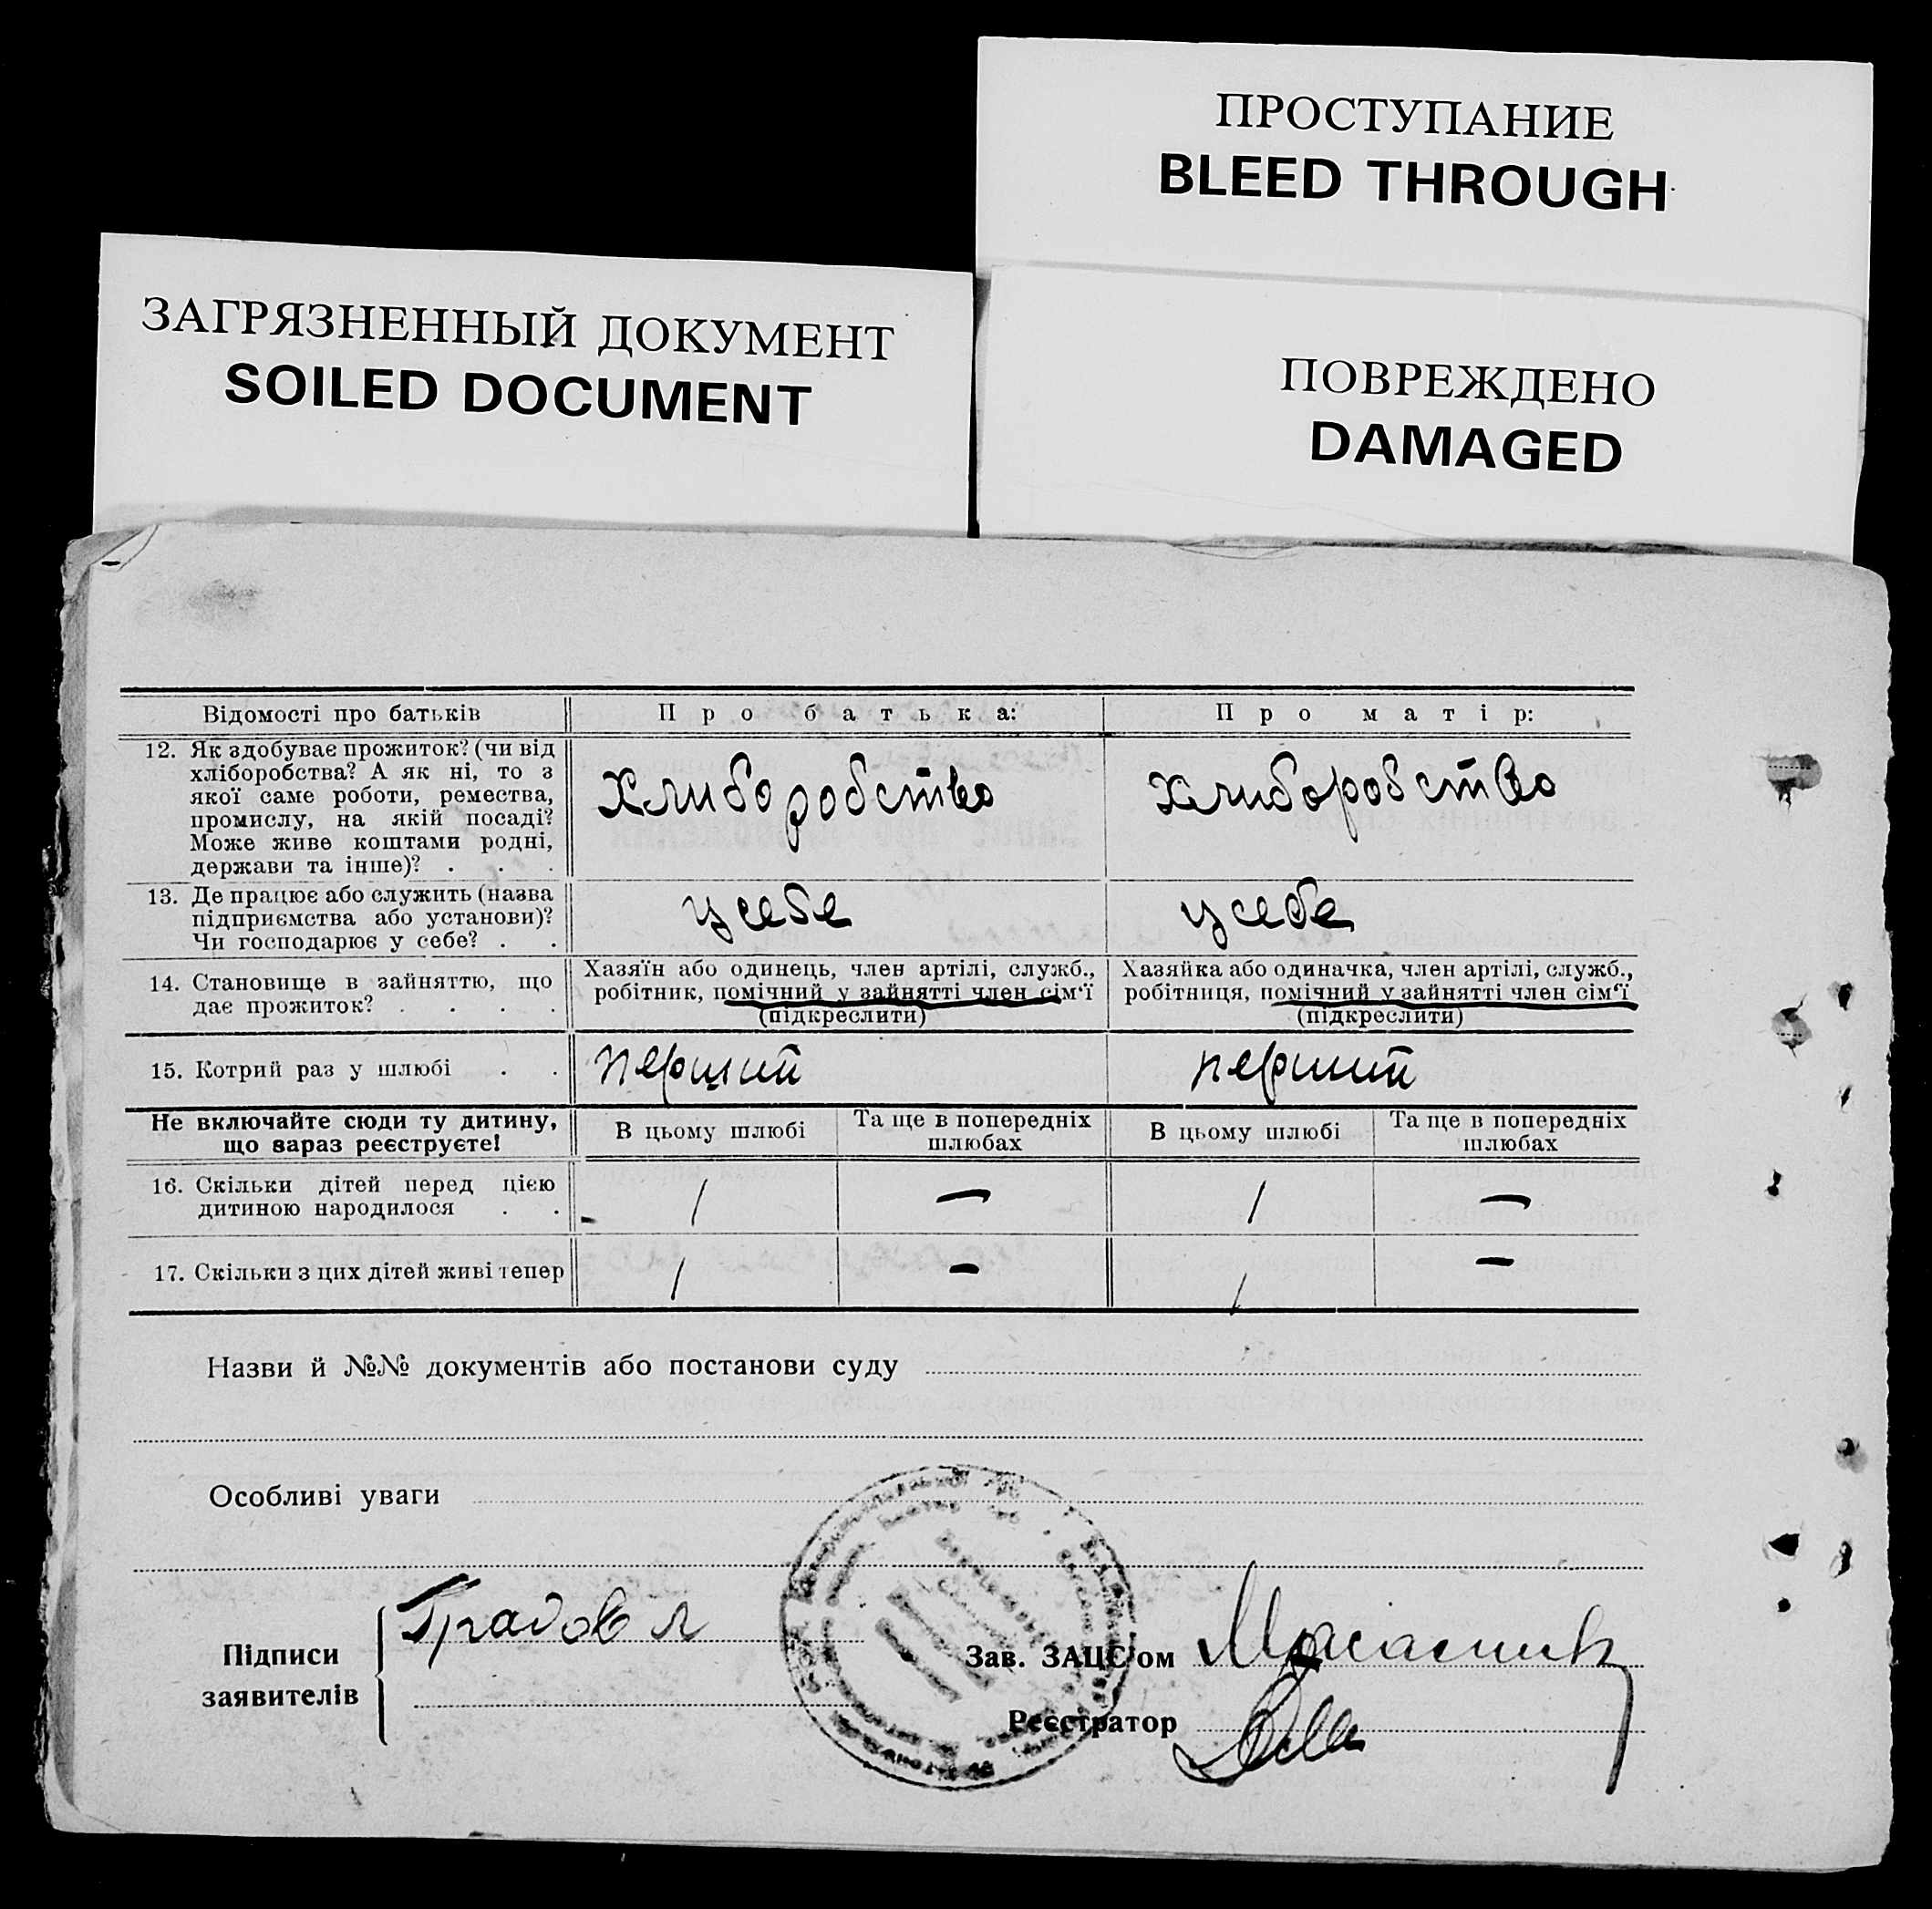 ПРОСТУПАНИЕ
BLEED THROUGH
ЗАГРЯЗНЕННЫЙ ДОКУМЕНТ
SOILED DOCUMENT
ПОВРЕЖДЕНО
DAMAGED
Відомості про батьків Про батька: Про матір:
12. Як здобуває прожиток? (чи від
хліборобства? А як ні, то з
якої саме роботи, ремества,
промислу, на якій посаді?
Може живе коштами родні,
держави та інше)? . . .
Хлиборобство хлиборобство
13. Де працює або служить (назва
підприємства або установи)?
Чи господарює у себе? . .
у себе у себе
14. Становище в зайняттю, що
дає прожиток? . . . .
Хазяїн або одинець, член артілі, служб.,
робітник, помічний у зайнятті член сім'ї
(підкреслити)
Хазяйка або одиначка, член артілі, служб.,
робітниця, помічний у зайнятті член сім'ї
(підкреслити)
15. Котрий раз у шлюбі . . перший перший
Не включайте сюди ту дитину,
що зараз реєструєте!
В цьому шлюбі Та ще в попередніх
шлюбах
В цьому шлюбі Та ще в попередніх
шлюбах
16. Скільки дітей перед цією
дитиною народилося . .
1 — 1 —
17. Скільки з цих дітей живі тепер 1 — 1 —
Назви й №№ документів або постанови суду
Особливі уваги
Підписи
заявителів
Градов
Зав. ЗАЦС'ом
Реєстратор